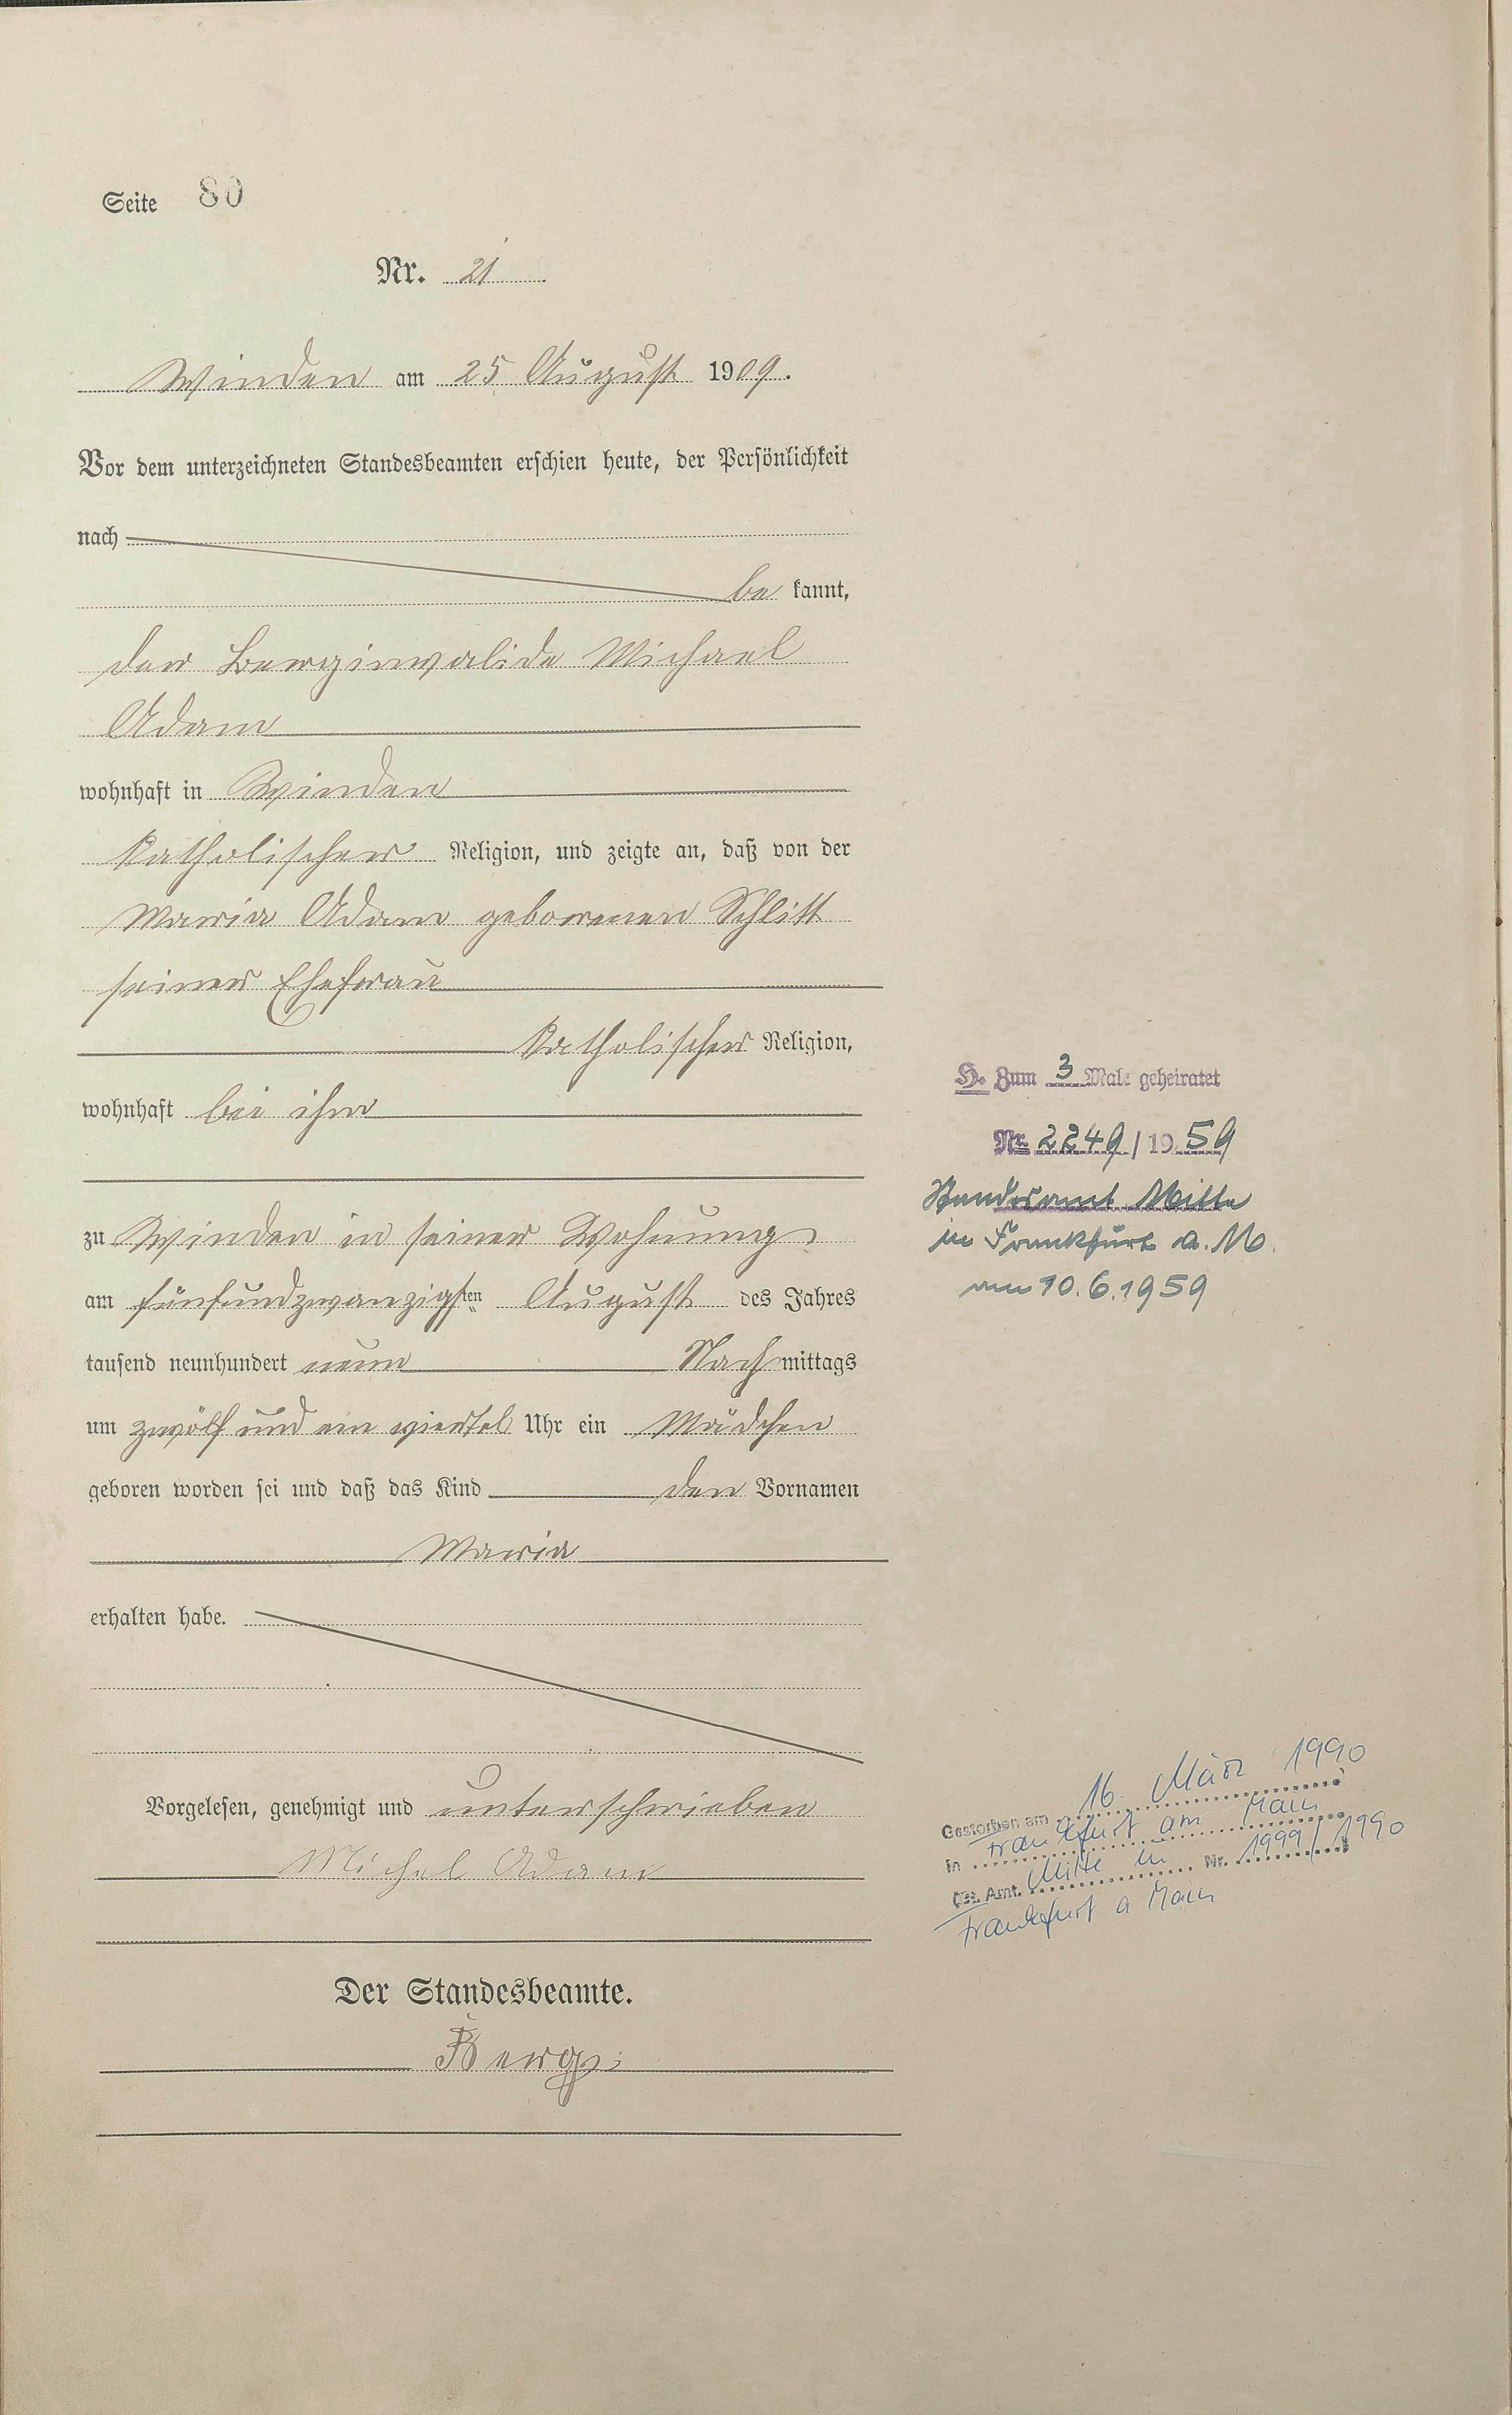 Seite 80
Nr. 21
Winden am 25 August 1909.
Vor dem unterzeichneten Standesbeamten erschien heute, der Persönlichkeit
nach
be kannt,
der Berginvalide Michael
Adam
wohnhaft in Winden
katholischer Religion, und zeigte an, daß von der
Maria Adam geborenen Schlitt
seiner Ehefrau
katholischer Religion,
wohnhaft bei ihm
zu Winden in seiner Wohnung
am fünfundzwanzigsten August des Jahres
tausend neunhundert neun Nachmittags
um zwölf und ein viertel Uhr ein Mädchen
geboren worden sei und daß das Kind den Vornamen
Maria
erhalten habe.
Vorgelesen, genehmigt und unterschrieben
Michel Adam
Der Standesbeamte.
Berg
H. Zum 3 Male geheiratet
Nr. 2249/1959
Standesamt Mitte
in Frankfurt a. M.
am 10.6.1959
Gestorben am 16. März 1990
in Frankfurt am Main
Amt. Mitte in Nr. 1999/1990
Frankfurt a Main